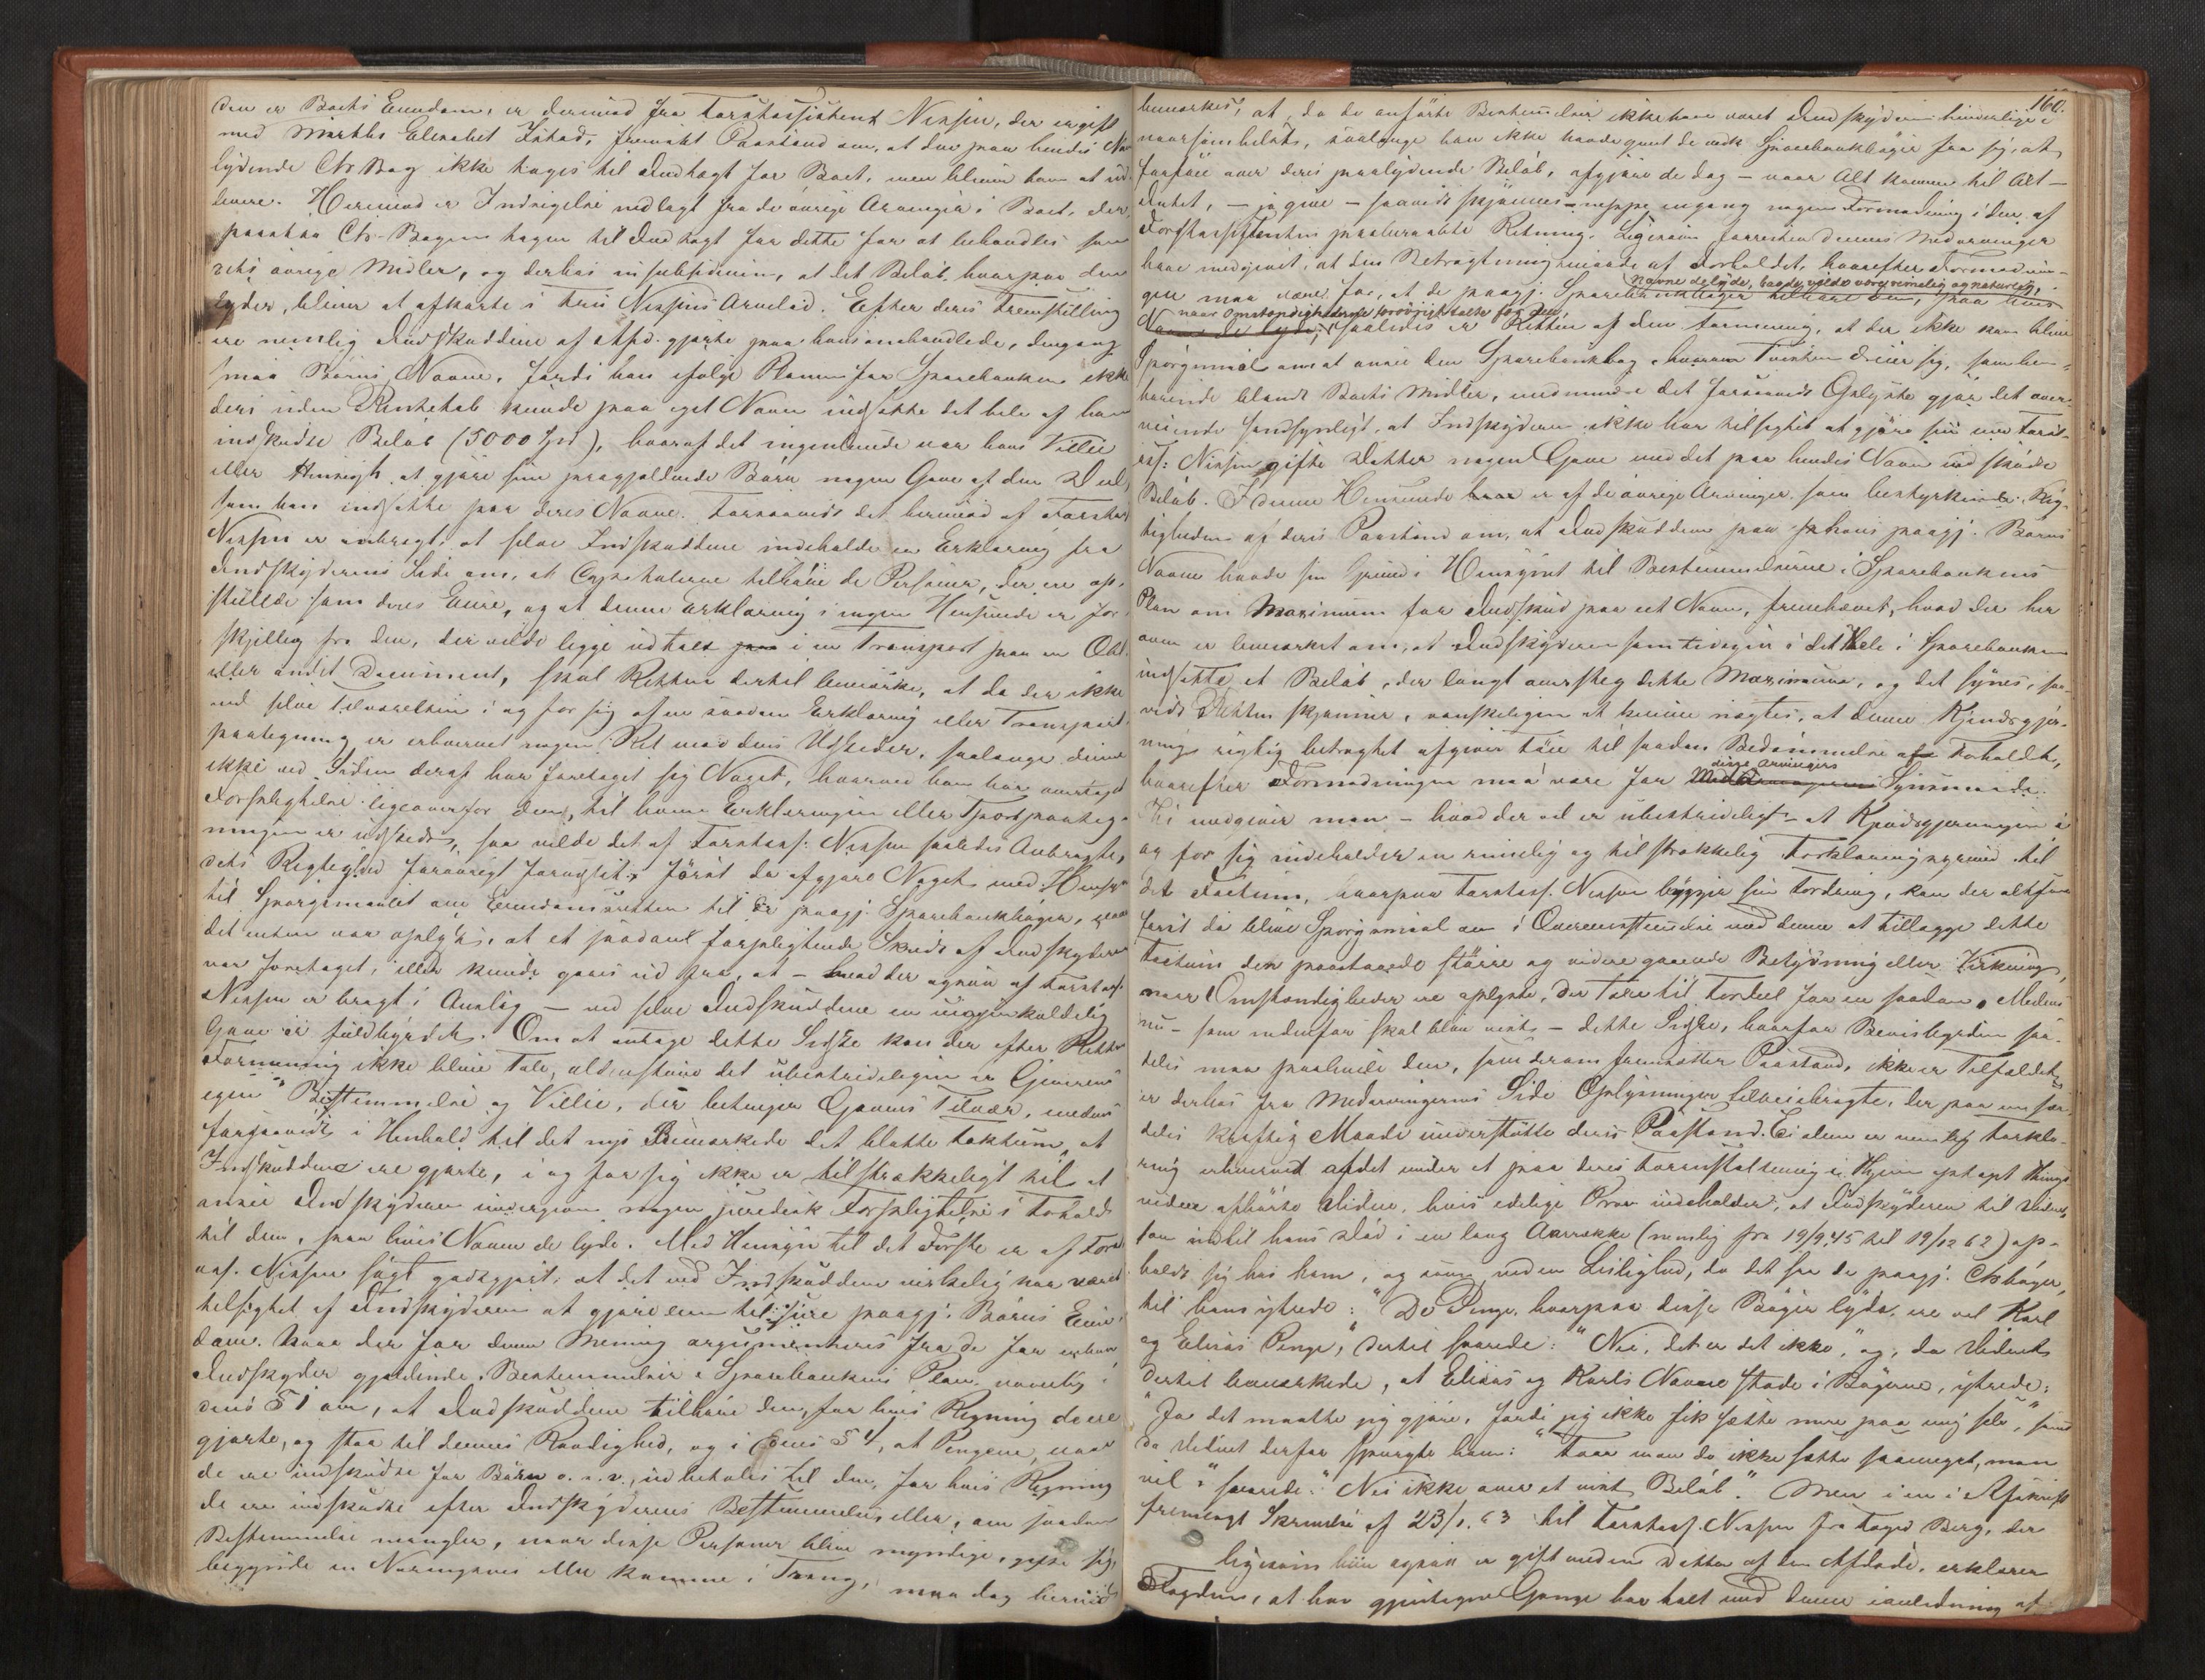 den er Boets Eiendom, er dermod fra Forstassistent Nissen, der er gift
med Marthe Elisabet Istad, fremsat Paastand om, at den paa hendes Navn
lydende Ctr Bog ikke tages til Indtægt for Boet, men bliver ham at ud-
levere. Herimod er Indsigelse nedlagt fra de øvrige Arvinger i Boet, der
paastaa Ctr-Bogen tagen til Indtægt for dette for at behandles som
dets øvrige Midler, og derhos in subsidium, at det Beløb, hvorpaa den
lyder, bliver at afkorte i Fru Nissens Arvelod. Efter deres Fremstilling
ere nemlig Indskuddene af Afd. gjorte paa hans ommeldte, dengang
smaa Børns Navne, fordi han ifølge Planen for Sparebanken ikke
der uden Rentetab kunde paa eget Navn indsætte det hele af ham
indskudte Beløb (5000 Spd), hvoraf det ingenlunde var hans Villie
eller Hensigt at gjøre sine paagjældende Børn nogen Gave af den Deel,
som han indsatte paa deres Navne. Forsaavidt det herimod af Forstass.
Nissen er anbragt, at selve Indskuddene indeholde en Erklæring fra
Indskyderens Side om, at Capitalerne tilhøre de Personer, der ere op-
stillede som deres Eiere, og at denne Erklæring i ingen Henseende er for-
skjellig fra den, der vilde ligge udtalt i en Transport paa en Obl.
eller andet Document, skal Retten dertil bemærke, at da der ikke
ved selve Tilværelsen i og for sig af en saadan Erklæring eller Transport-
paategning er erhvervet nogen Ret mod dens Udsteder, saalænge denne
ikke ved Siden deraf har foretaget sig Noget, hvorved han har overtaget
Forpligtelse ligeoverfor dem, til hvem Erklæringen eller Tportpaateg-
ningen er udstedt, saa vilde det af Forstass: Nissen saaledes Anbragte,
dets Rigtighed forøvrigt forudsat, først da afgjøre Noget med Hensyn
til Spørgsmaalet om Eiendomsretten til de paagj. Sparebankbøger, naar
det enten var oplyst, at et saadant forpligtende Skridt af Indskyderen
var foretaget, eller kunde gaaes ud fra, at – hvad der ogsaa af Forstass.
Nissen er bragt i Anslag – ved selve Indskuddene en uigjenkaldelig
Gave er fuldbyrdet. Om at antage dette Sidste kan der efter Rettens
Formening ikke blive Tale, aldenstund det ubestrideligen er Giverens
egen Bestemmelse og Villie, der betinger Gavens Tilvær, medens
forsaavidt i Henhold til det nys Bemærkede det blotte Faktum, at
Indskuddene ere gjorte, i og for sig ikke er tilstrækkeligt til at
ansee Indskyderen undergiven nogen juridisk Forpligtelse i Forhold
til dem, paa hvis Navn de lyde. Med Hensyn til det Første er af Forst-
ass. Nissen søgt godtgjort, at det ved Indskuddene virkelig har været
tilsigtet af Indskyderen at gjøre dem til sine paagj. Børns Eien-
dom. Naar der for denne Mening argumenteres fra de for enhver
Indskyder gjældende Bestemmelser i Sparebankens Plan, navnlig i
dens § 1 om, at Indskuddene tilhøre den, for hvis Regning de ere
gjorte, og staa til dennes Raadighed, og i dens § 4, at Pengene, naar
de ere indskudte for Børn o. s. v., udbetales til den, for hvis Regning
de ere indskudte efter Indskyderens Bestemmelse, eller, om saadan
Bestemmelse mangler, naar disse Personer blive myndige, gifte sig,
begynde en Næringsvei eller komme i Trang, maa dog herved
160.
bemærkes, at, da de anførte Bestemmelser ikke have været Indskyderen hinderlige i
naarsomhelst, saalænge han ikke havde givet de omh. Sparebankbøger fra sig, at
forføie over deres paalydende Beløb, afgjøre de dog – naar Alt kommer til Alt –
Intet, – ja give – saavidt skjønnes – neppe engang nogen Formodning i den af
Forstassistenten paaberaabte Retning. Ligesom forresten dennes Medarvinger
have medgivet, at den Betragtningsmaade af Forholdet, hvorefter Formodnin-
gen maa være for, at de paagj. Sparebankbøger tilhøre den, paa hvis
Navne de lyde, baade vilde være rimelig og naturlig,
naar Omstændighederne forøvrigt talte for den,
Navn de lyde, saaledes er Retten af den Formening, at der ikke kan blive
Spørgsmaal om at ansee den Sparebankbog, hvorom Tvisten dreier sig, som hen-
hørende blandt Boets Midler, medmindre det forøvrigt Oplyste gjør det over-
veiende sandsynligt, at Indskyderen ikke har tilsigtet at gjøre sin med Forst-
ass: Nissen gifte Datter nogen Gave med det paa hendes Navn indskudte
Beløb. I denne Henseende er af de øvrige Arvinger, som bestyrkende Rig-
tigheden af deres Paastand om, at Indskuddene paa hans paagj. Børns
Navne havde sin Grund i Hensynet til Bestemmelserne i Sparebankens
Plan om Maximum for Indskud paa eet Navn, fremhævet, hvad der her
oven er bemærket om, at Indskyderen samtidigen i det Hele i Sparebanken
indsatte et Beløb, der langt oversteg dette Maximum, og det synes, saa-
vidt Retten skjønner, vanskeligen at kunne nægtes, at denne Kjendsgjer-
ning rigtig betragtet afgiver Føie til saadan Bedømmelse af Forholdet,
hvorefter Formodningen maa være for disse Arvingers Synsmaade.
Thi medgiver man – hvad der vel er ubestrideligt – at Kjendsgjerningen i
og for sig indeholder en rimelig og tilstrækkelig Forklaringsgrund til
det Factum, hvorpaa Forstass. Nissen bygger sin Fordring, kan der altsaa
først da blive Spørgsmaal om i Overensstemmelse med denne at tillægge dette
Factum den paastaaede større og videregaaende Betydning eller Virkning,
naar Omstændigheder ere oplyste, der tale til Fordeel for en saadan. Medens
nu – som nedenfor skal blive viist – dette Sidste, hvorfor Bevisbyrden saa-
ledes maa paahvile den, som derom fremsætter Paastand, ikke er Tilfældet,
er derhos fra Medarvingernes Side Oplysninger tilveiebragte, der paa en sær-
deles kraftig Maade understøtte deres Paastand. Ei alene er nemlig Forkla-
ring erhvervet af det under et paa deres Foranstaltning i Hjem optaget Things-
vidne afhørte Vidne, hvis edelige Prov indeholder, at Indskyderen til Vidnet,
som indtil hans Død i en lang Aarrække (nemlig fra 19/9 45 til 19/12 62) op-
holdt sig hos ham, og som ved en Leilighed, da det saa de paagj. Ctrbøger,
til ham ytrede: "De Penge, hvorpaa disse Bøger lyde, ere vel Karl
og Elisas Penge," dertil svarede: "Nei, det er det ikke," og, da Vidnet
dertil bemærkede, at Elisas og Karls Navne stode i Bøgerne, ytrede:
"Ja det maatte jeg gjøre, fordi jeg ikke fik sætte mere paa mig selv," samt
da Vidnet derfor spurgte ham: "Faar man da ikke sætte saameget, man
vil" svarede: "Nei ikke over et vist Beløb". Men i en i Afskrift
fremlagt Skrivelse af 23/1. 63 til Forstass. Nissen fra Foged Berg, der
ligesom hiin ogsaa er gift med en Datter af den Afdøde, erklærer
Fogden, at han gjentagne Gange har talt med denne i anledning af